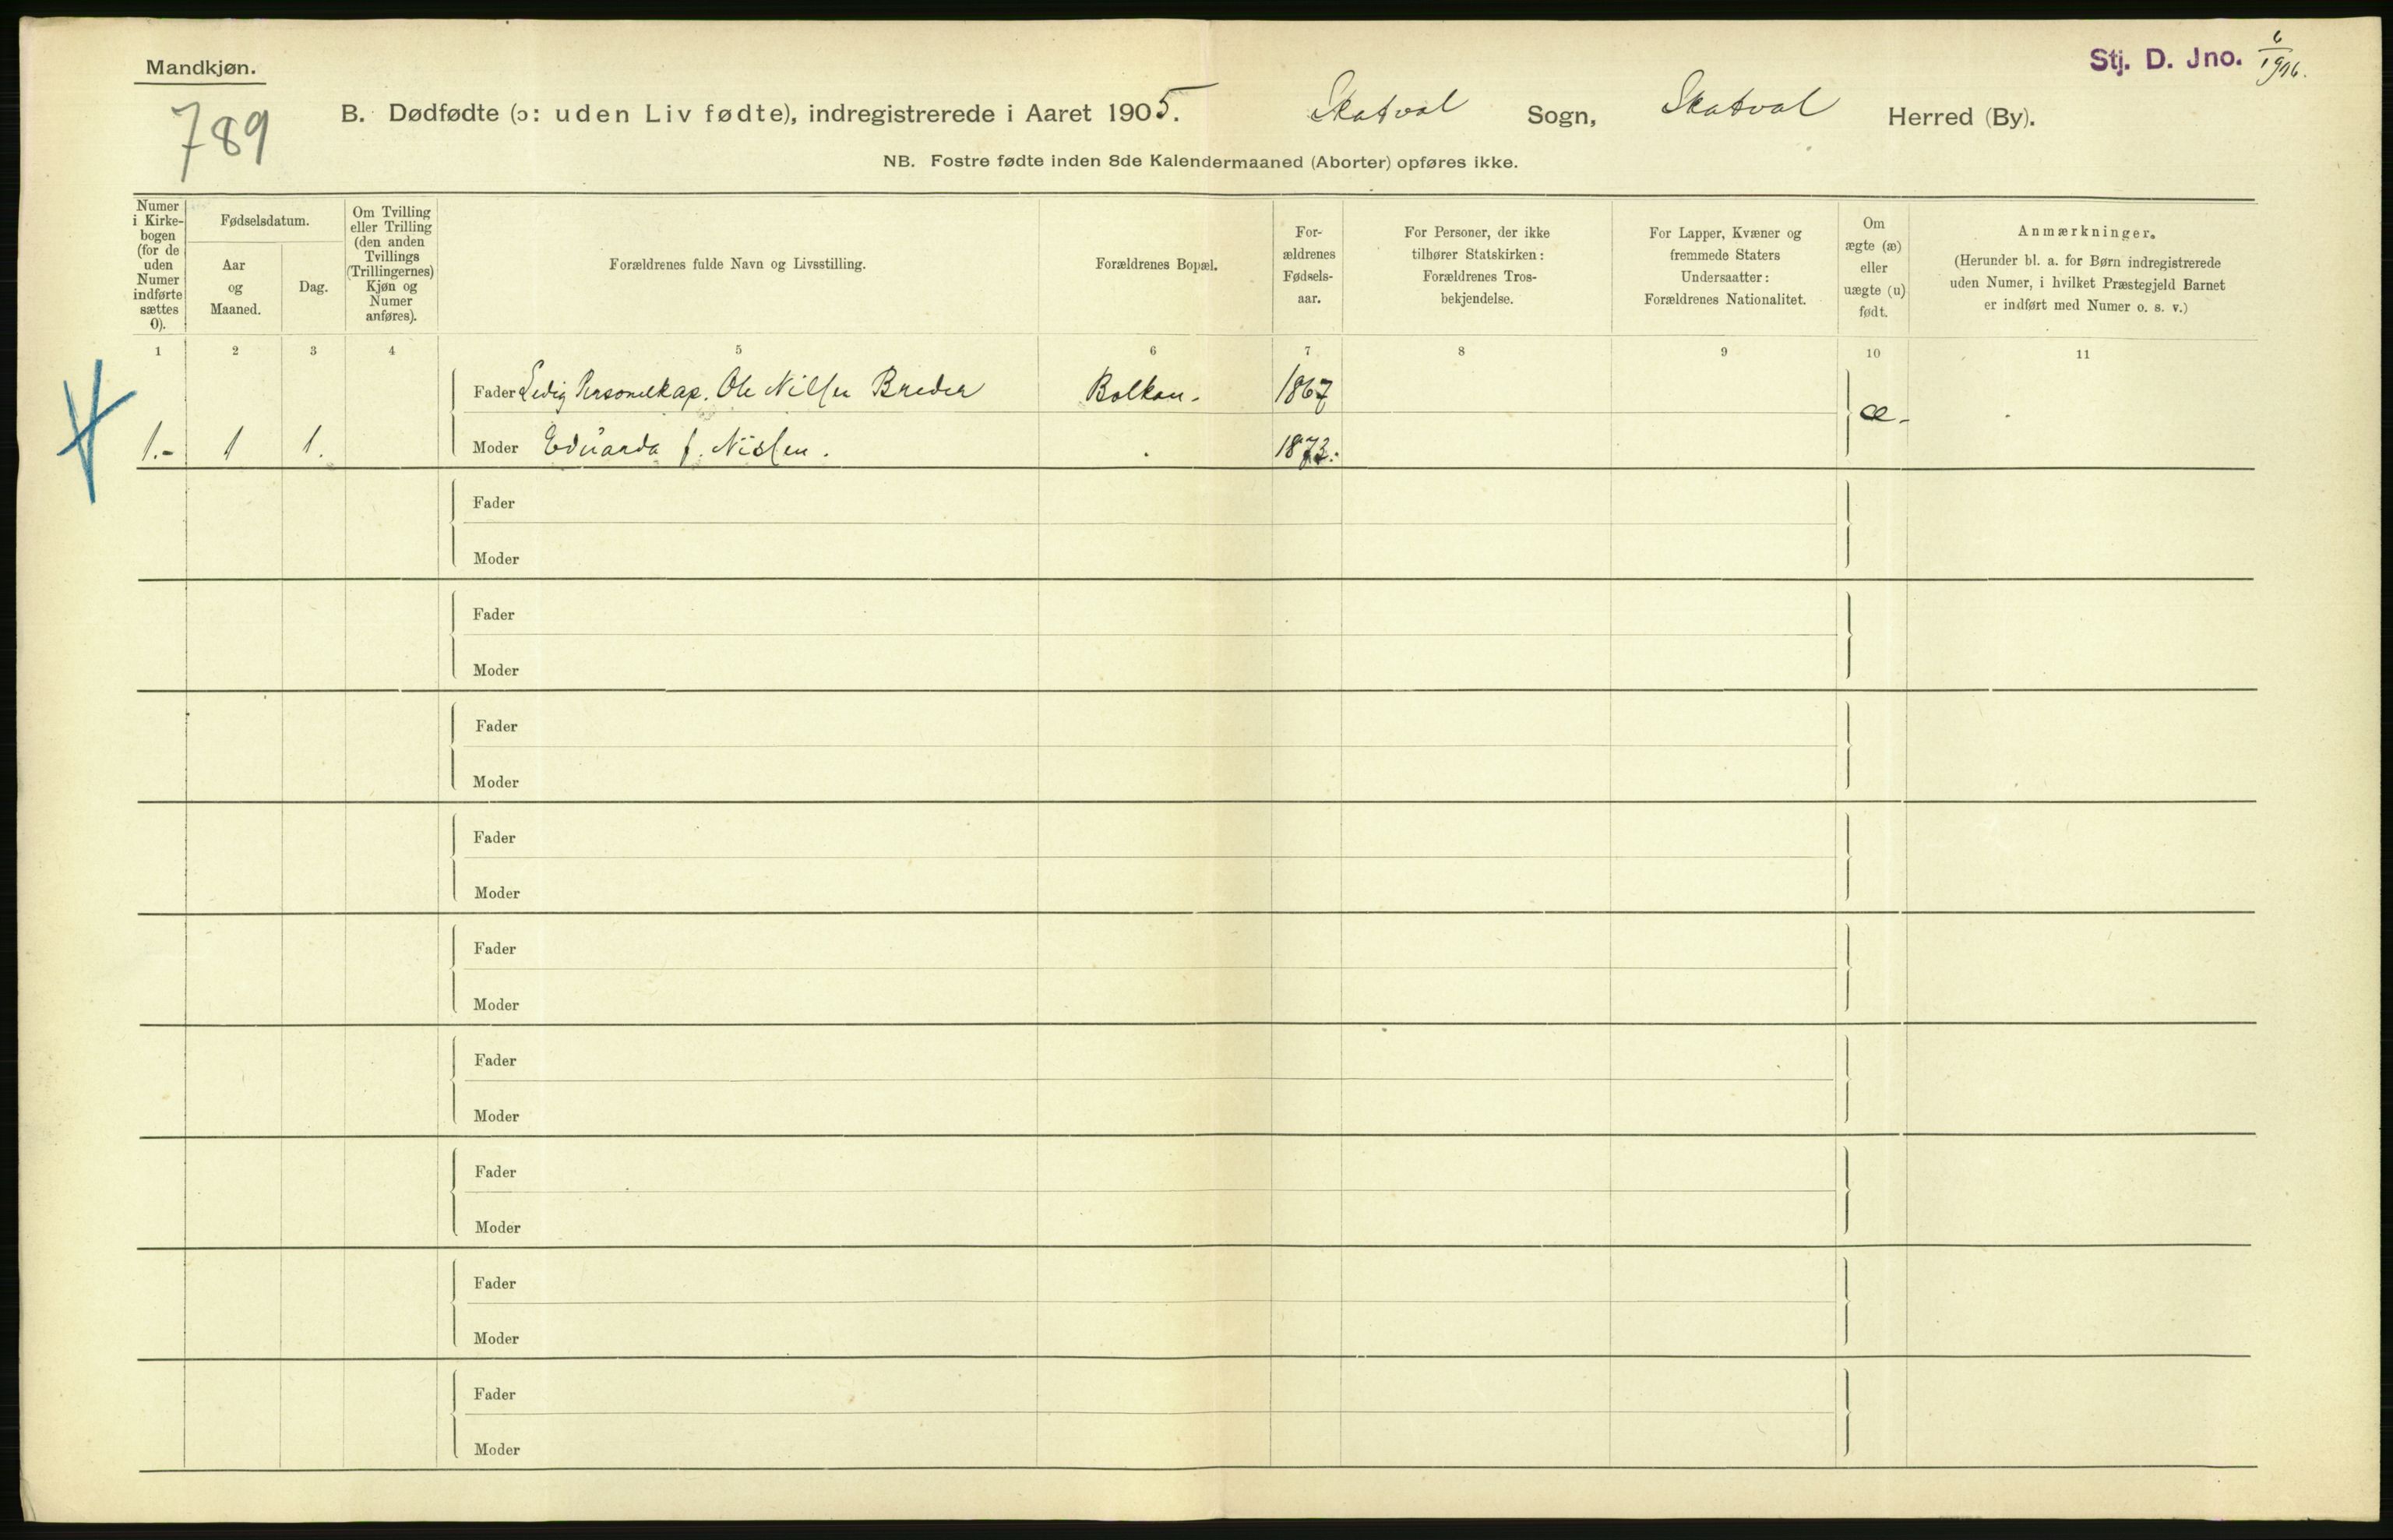 Mandkjøn.
Stj. D. Jno. 6/1906.
789
B. Dødfødte (ɔ: uden Liv fødte), indregistrerede i Aaret 1905. Skatval Sogn, Skatval Herred (By).
NB. Fostre fødte inden 8de Kalendermaaned (Aborter) opføres ikke.
Numer
i Kirke-
bogen
(for de
uden
Numer
indførte
sættes
0).
Fødselsdatum.
Aar
og
Maaned.
Dag.
Om Tvilling
eller Trilling
(den anden
Tvillings
(Trillingernes)
Kjøn og
Numer
anføres).
Forældrenes fulde Navn og Livsstilling.
Forældrenes Bopæl.
For-
ældrenes
Fødsels-
aar.
For Personer, der ikke
tilhører Statskirken:
Forældrenes Tros-
bekjendelse.
For Lapper, Kvæner og
fremmede Staters
Undersaatter:
Forældrenes Nationalitet.
Om
ægte (æ)
eller
uægte (u)
født.
Anmærkninger.
(Herunder bl. a. for Børn indregistrerede
uden Numer, i hvilket Præstegjeld Barnet
er indført med Numer o. s. v.)
1 2 3 4 5 6 7 8 9 10 11
Fader Ledig Ole Nilsen Breder Bolkan. 1867
æ.
1.- 1 1. Moder Eduarda f. Nislen. 1873.
Fader
Moder
Fader
Moder
Fader
Moder
Fader
Moder
Fader
Moder
Fader
Moder
Fader
Moder
Fader
Moder
Fader
Moder